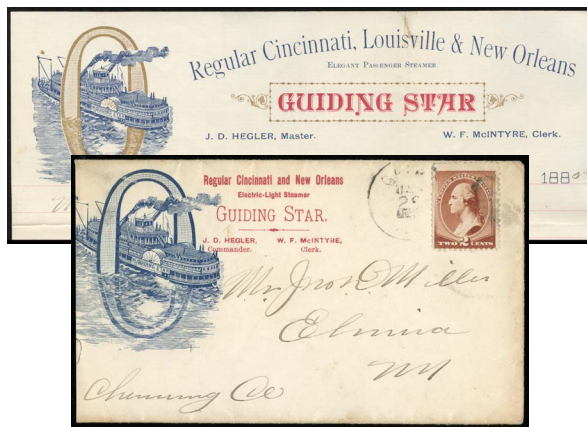 Regular Cincinnati, Louisville & New Orleans
ELEGANT PASSENGER STEAMER
GUIDING STAR
J. D. HEGLER, Master.
W. F. McINTYRE, Clerk.
188
Regular Cincinnati and New Orleans
Electric-Light Steamer
GUIDING STAR.
J. D. HEGLER, W. F. McINTYRE,
Commander. Clerk.
TWO 2 CENTS
Mr. Jno. D. Miller
Elmira
NY
Chemung Co